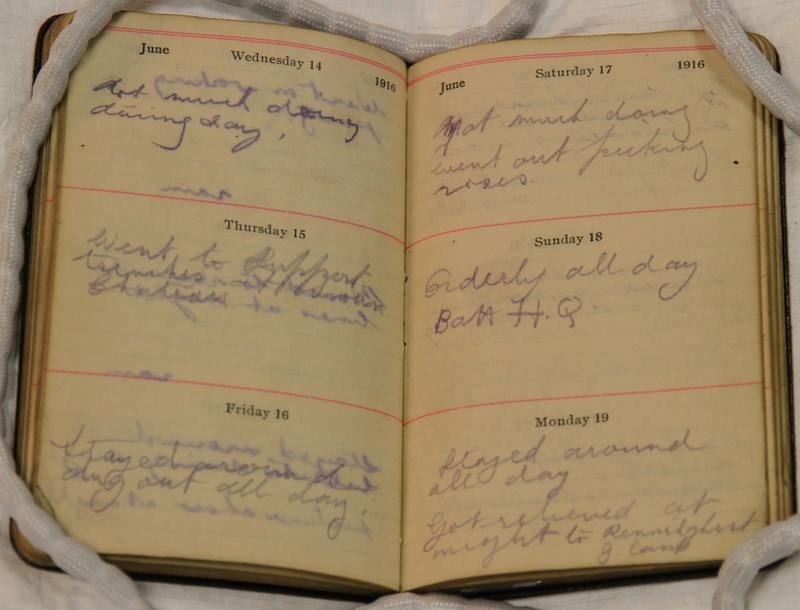 June Wednesday 14 1916
Not much doing
during day,
Thursday 15
Went to Support
trenches at
Chateau
Friday 16
Stayed around
dug out all day.
June Saturday 17 1916
Not much doing
went out picking
roses.
Sunday 18
Orderly all day
Batt H.Q.
Monday 19
Stayed around
all day
Got relieved at
night to
Camp